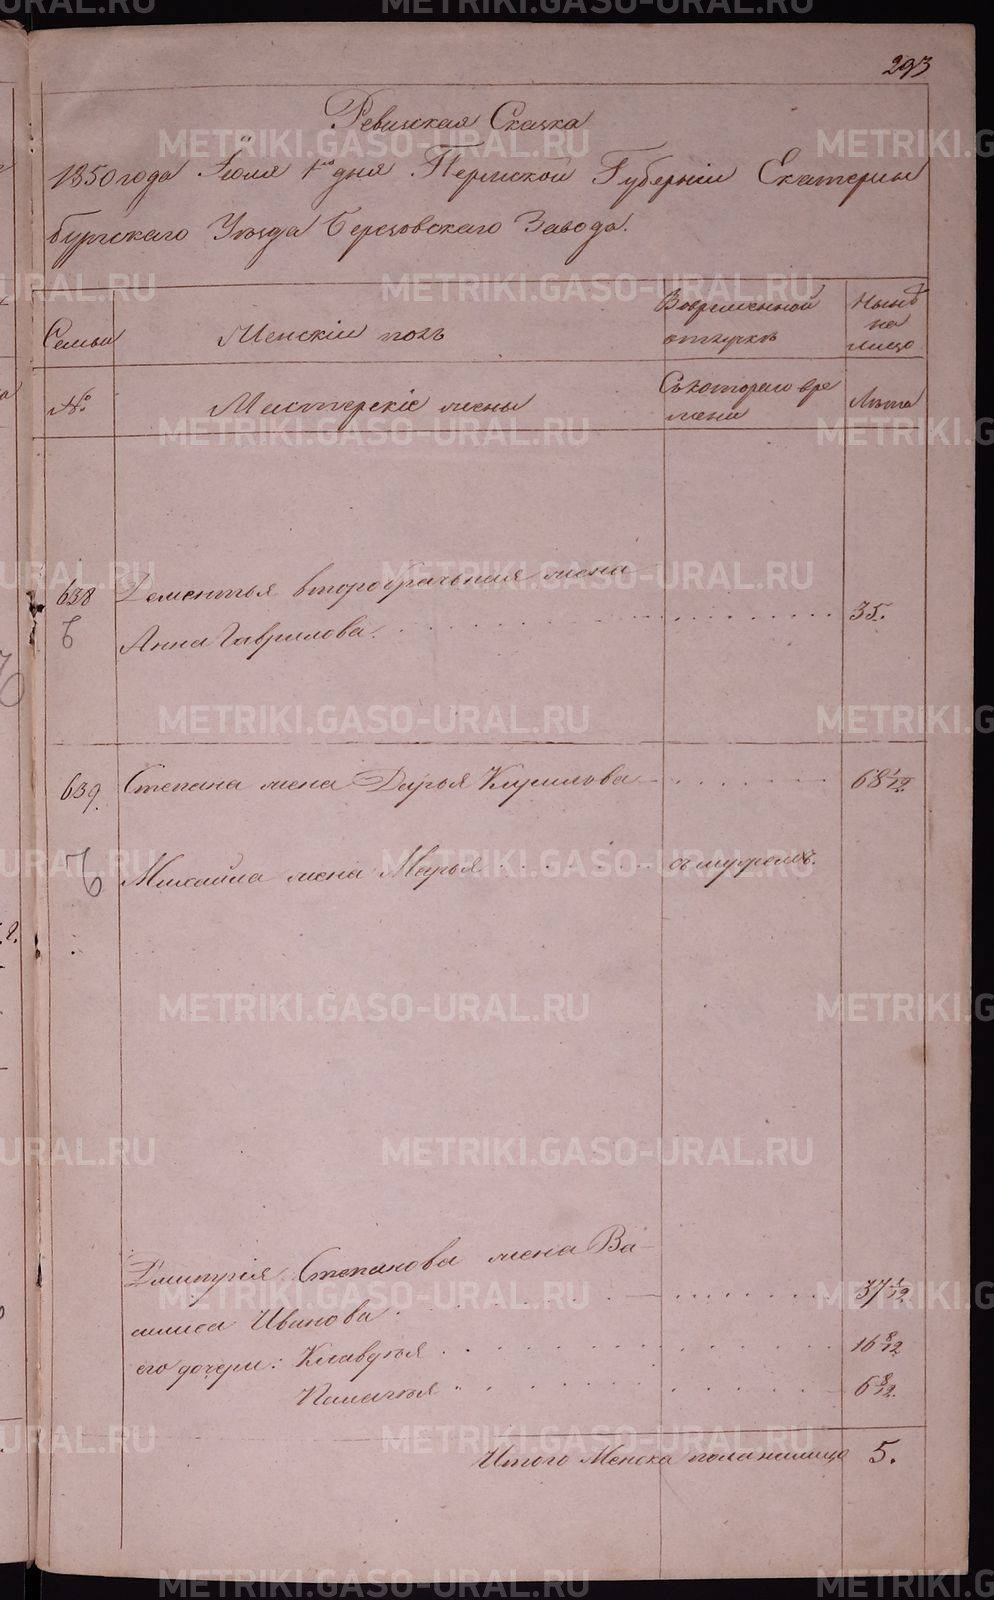 293
Ревизская Сказка
1850 года Іюля 1го дня Пермской Губерніи Екатерин
бургскаго Уѣзда Березовскаго Завода.
Семьи
Женскій полъ
Вовременной отлучкѣ
Нынѣ на лицо
№
Мастерскіе жены
Съ котораго вре
мени
Лѣта
638
Дементья второбрачьная жена
Анна Гаврилова. 35.
639.
Степана жена Дарья Кирилова 68 1/12.
Михайла жена Марья съ мужемъ.
Дмитрія Степанова жена Ва
силиса Иванова 37 1/12
его дочери: Клавдѣя 16 8/12
Палагѣя 6 8/12.
Итого Женска пола налицо 5.
METRIKI.GASO-URAL.RU